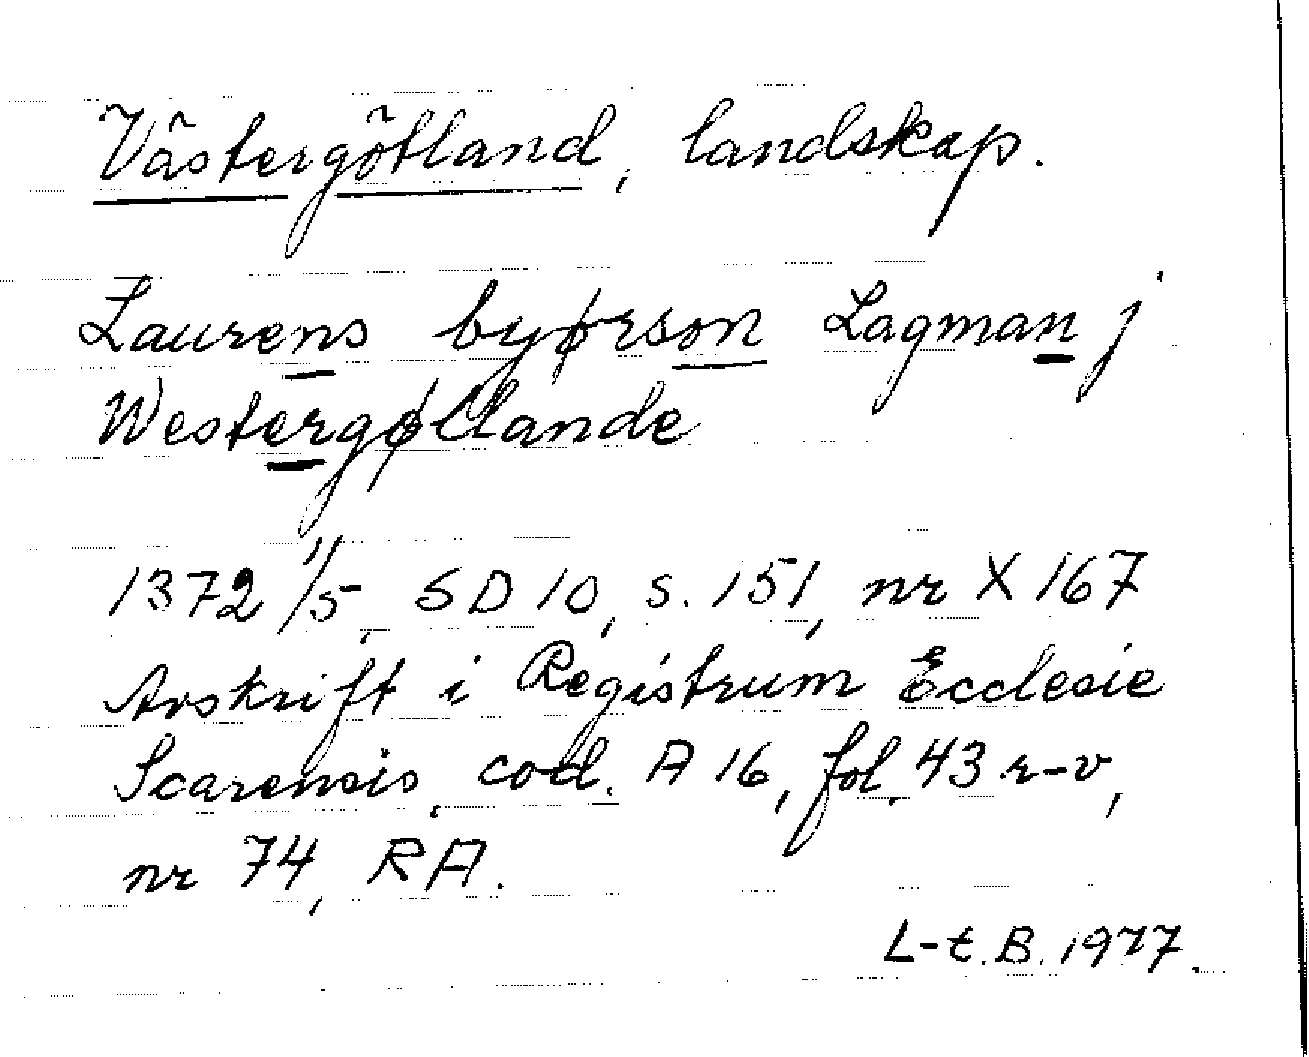 Västergötland, landskap.
Laurens byørson Lagman j
Westergøtlande
1372 1/5, SD 10, s. 151, nr X 167
Avskrift i Registrum Ecclesie
Scarensis, cod. A 16, fol. 43 r-v,
nr 74, RA.
L-t.B. 1977.